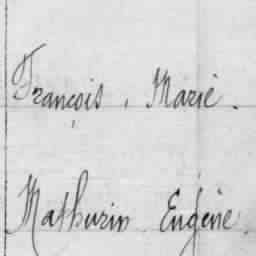 François, Marie.
Mathurin Eugène.